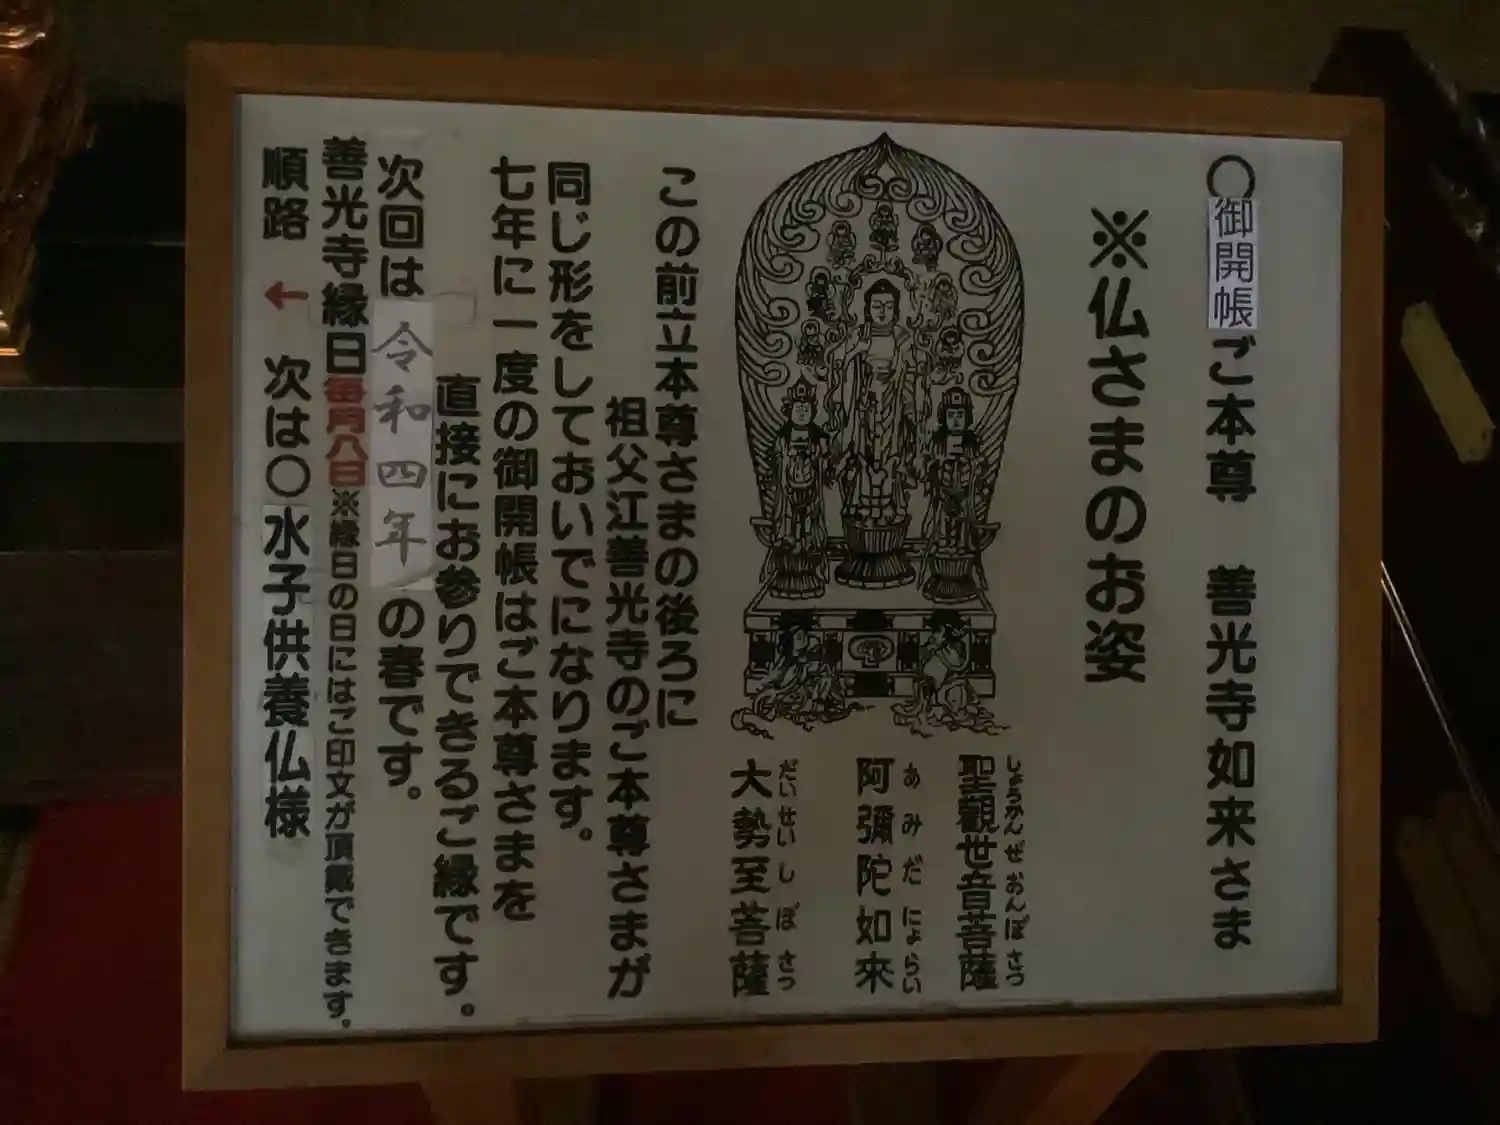 〇御開帳ご本尊　善光寺如来さま
※仏さまのお姿
聖觀世音菩薩
しょうかんぜおんぼさつ
阿彌陀如來
あみだにょらい
大勢至菩薩
だいせいしぼさつ
この前立本尊さまの後ろに
祖父江善光寺のご本尊さまが
同じ形をしておいでになります。
七年に一度の御開帳はご本尊さまを
直接にお参りできるご縁です。
次回は令和四年の春です。
善光寺縁日毎月八日※縁日の日にはご印文が頂戴できます。
順路 ← 次は〇水子供養仏様